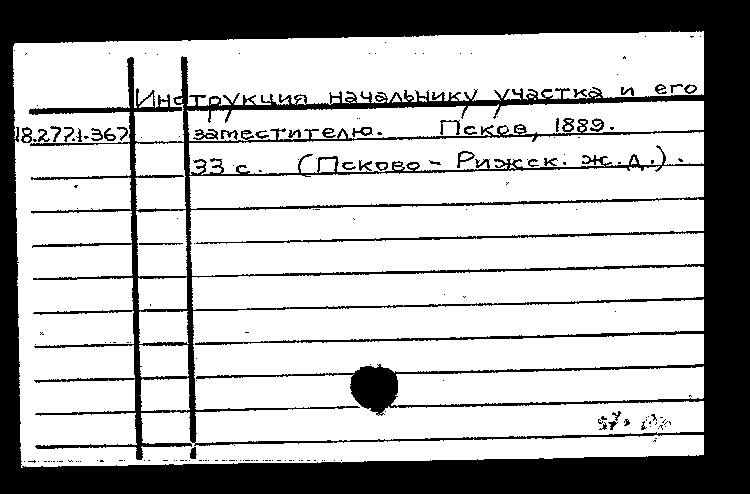 Инструкция начальнику участка и его
18.277.1-367 заместителю. Псков, 1889.
33 с. (Псково - Рижск. ж.д.).